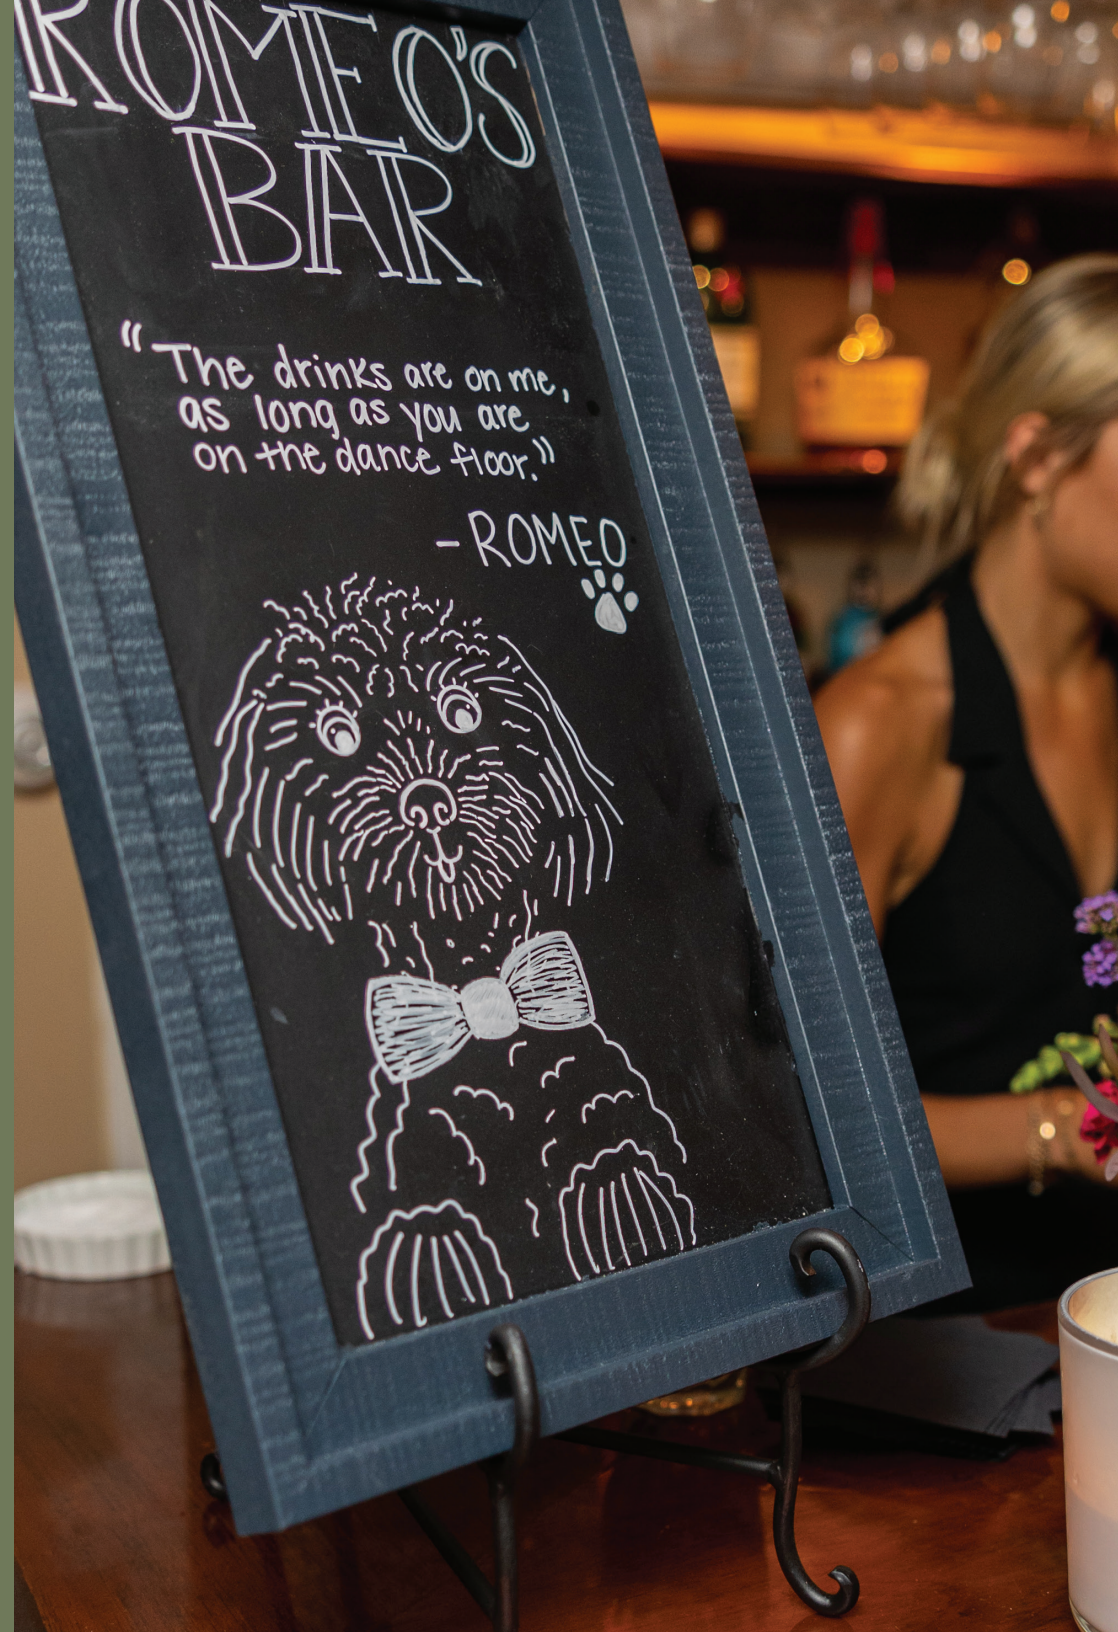 ROMEO'S
BAR
"The drinks are on me,
as long as you are
on the dance floor."
-ROMEO